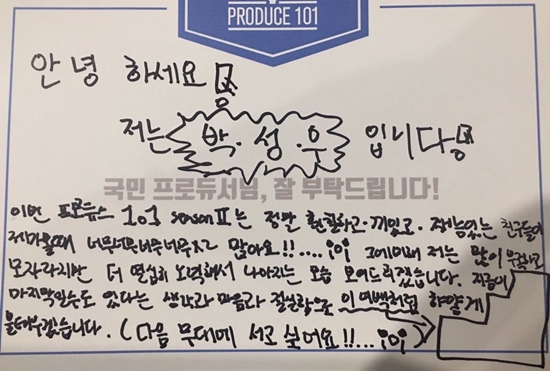 PRODUCE 101
안녕 하세요
저는 박.성.우 입니다
국민 프로듀서님, 잘 부탁드립니다!
이번 프로듀스 101 season II는 정말 훤칠하고 끼있고. 재능있는 친구들이
너무너무너무너무 많아요!!.... 그에비해 저는 많이
모자라지만 더 열심히 노력해서 나아지는 모습 보여드리겠습니다. 지금이
마지막일수도 있다는 생각과 마음과 절실함으로 이 여백처럼 하얗게
불태우겠습니다. (다음 무대에 서고 싶어요!!...)